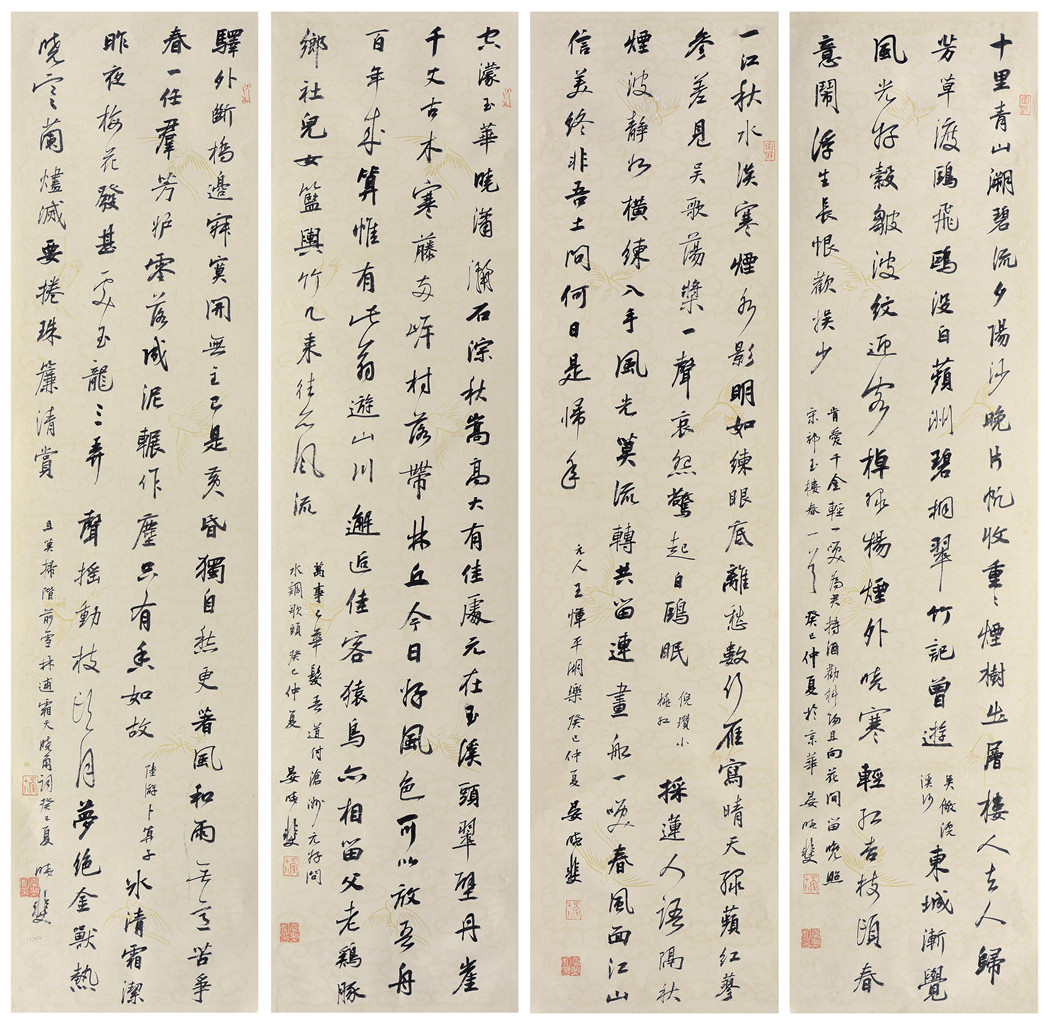 十里青山溯碧流夕陽沙晚片帆收重重煙樹出層樓人去人歸
芳草渡鷗飛鷗沒白蘋洲碧桐翠竹記曾遊
吳儆浣
溪沙
東城漸覺
風光好縠皺波紋迎客棹綠楊煙外曉寒輕紅杏枝頭春
意鬧浮生長恨歡娛少
肯愛千金輕一笑為君持酒勸斜陽且向花間留晚照
宋祁玉樓春 癸巳仲夏於京華 晏曉斐
一江秋水淡寒煙水影明如練眼底離愁數行雁寫晴天綠蘋紅蓼
參差見吳歌蕩槳一聲哀怨驚起白鷗眠
倪瓚小
桃紅
採蓮人語隔秋
煙波靜如橫練入手風光莫流轉共留連畫船一笑春風面江山
信美終非吾土問何日是歸年
元人王惲平湖樂癸巳仲夏 晏曉斐
空濛玉華曉瀟灑石淙秋嵩高大有佳處元在玉溪頭翠壁丹崖
千丈古木寒藤兩岸村落帶林丘今日好風色可以放吾舟
百年來算惟有此翁遊山川邂逅佳客猿鳥亦相留父老鷄豚
鄉社兒女籃輿竹几來往亦風流
萬事已華髮吾道付滄洲元好問
水調歌頭 癸巳仲夏 晏曉斐
驛外斷橋邊寂寞開無主已是黃昏獨自愁更著風和雨無意苦爭
春一任羣芳妒零落成泥輾作塵只有香如故
陸游卜算子
冰清霜潔
昨夜梅花發甚處玉龍三弄聲搖動枝頭月夢絕金獸熱
曉寒蘭燼滅要捲珠簾清賞
且莫掃階前雪林逋霜天曉角詞癸巳夏 曉斐